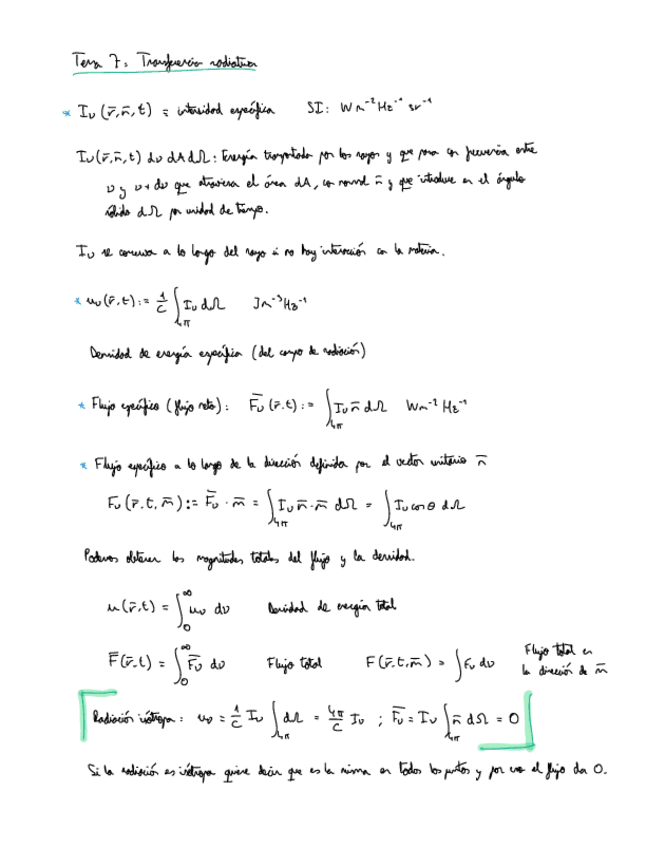 Tema 7: Transferencia radiativa
* Iν (r̄, n̄, t) = intensidad específica SI: W m⁻² Hz⁻¹ sr⁻¹
Iν(r̄, n̄, t) dν dA dΩ : Energía transportada por los rayos y que pasa con frecuencia entre
ν y ν + dν que atraviesa el área dA, con normal n̄ y que introduce en el ángulo
sólido dΩ por unidad de tiempo.
Iν se conserva a lo largo del rayo si no hay interacción con la materia.
* uν (r̄, t) := 1/c ∫4π Iν dΩ J m⁻³ Hz⁻¹
Densidad de energía específica (del campo de radiación)
* Flujo específico (flujo neto): F̄ν (r̄, t) := ∫4π Iν n̄ dΩ W m⁻² Hz⁻¹
* Flujo específico a lo largo de la dirección definida por el vector unitario m̄
Fν (r̄, t, m̄) := F̄ν · m̄ = ∫4π Iν n̄ · m̄ dΩ = ∫4π Iν cos θ dΩ
Podemos obtener las magnitudes totales del flujo y la densidad.
u (r̄, t) = ∫0^∞ uν dν Densidad de energía total
F̄ (r̄, t) = ∫0^∞ F̄ν dν Flujo total F (r̄, t, m̄) = ∫ Fν dν Flujo total en
la dirección de m̄
Radiación isótropa: uν = 1/c Iν ∫4π dΩ = 4π/c Iν ; F̄ν = Iν ∫4π n̄ dΩ = 0
Si la radiación es isótropa quiere decir que es la misma en todos los puntos y por eso el flujo da 0.